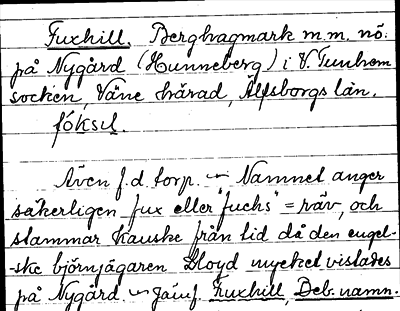 Fuxhill. Berghagmark m.m. nö.
på Nygård (Hunneberg) i V. Tunhem
socken, Väne härad, Älfsborgs län.
fóksil.
Även f.d. torp. — Namnet anger
säkerligen fux eller "fuchs" = räv, och
stammar kanske från tid då den engel-
-ske björnjägaren Lloyd mycket vistades
på Nygård. — Jämf. Fuxhill, Deb. namn.